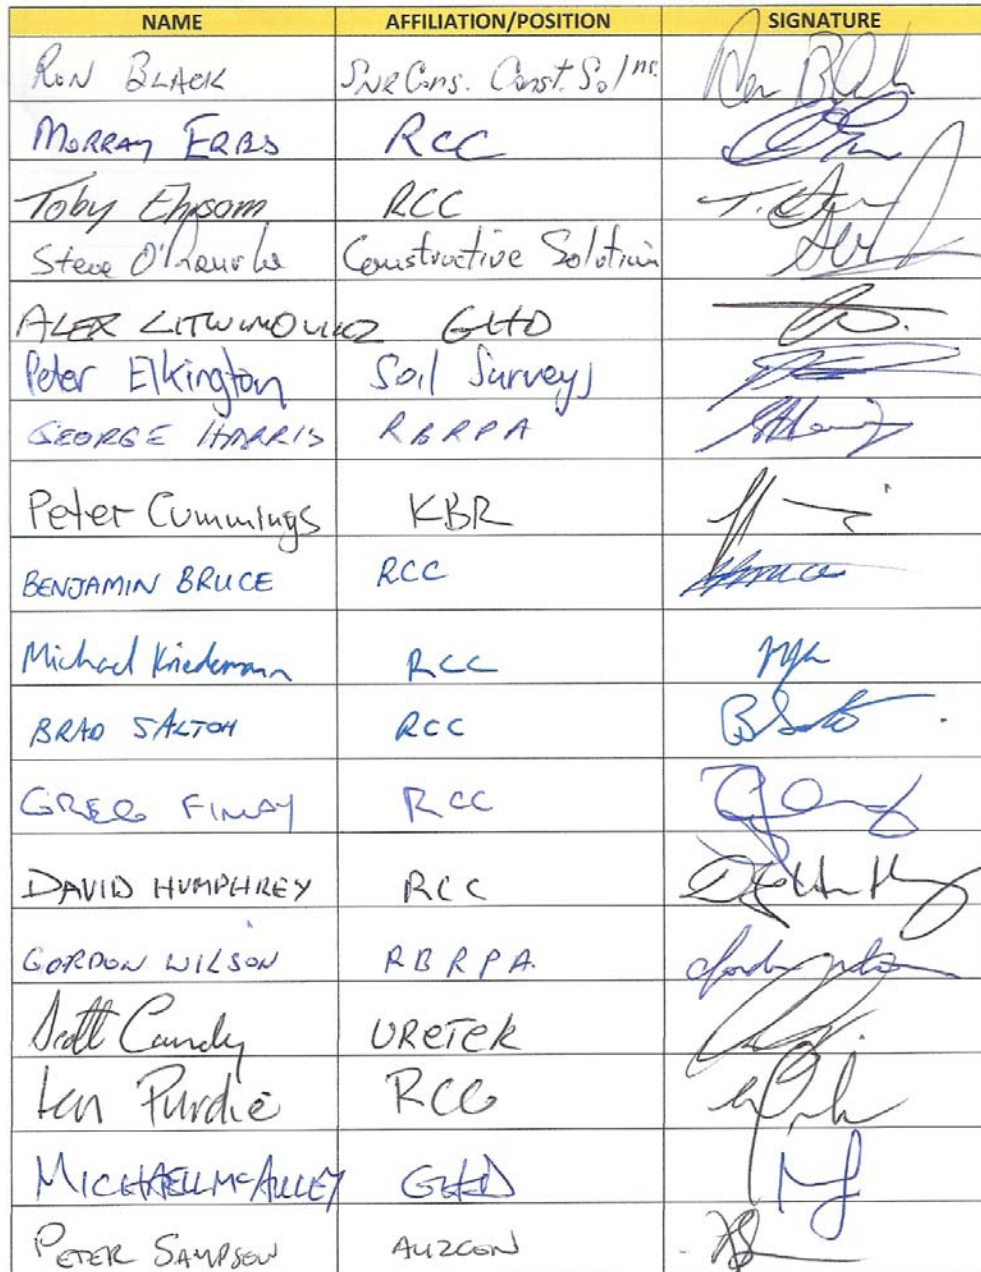 NAME AFFILIATION/POSITION SIGNATURE
RON BLACK Snr Cons. Const. Solns.
MURRAY ERBS RCC
Toby Ehrsom RCC
Steve O'Rourke Constructive Solutions
ALEX LITWINOWICZ GHD
Peter Elkington Soil Surveys
GEORGE HARRIS RBRPA
Peter Cummings KBR
BENJAMIN BRUCE RCC
Michael Kriedemann RCC
BRAD SALTON RCC
GREG FINLAY RCC
DAVID HUMPHREY RCC
GORDON WILSON RBRPA.
Scott Candy URETEK
Ian Purdie RCC
MICHAEL McAULLEY GHD
PETER SAMPSON AUZCON